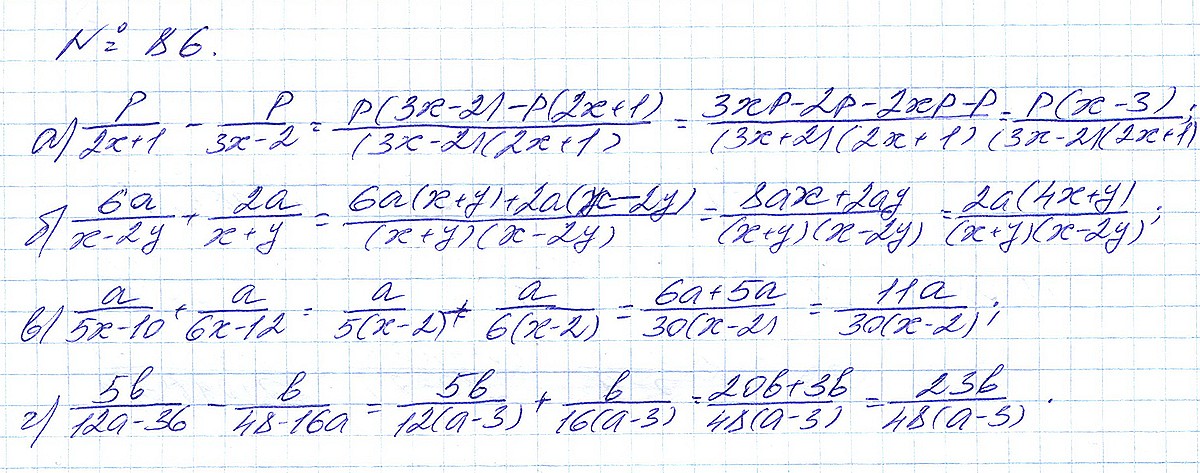 № 86.
а) p/(2x+1) - p/(3x-2) = (p(3x-2)-p(2x+1))/((3x-2)(2x+1)) = (3xp-2p-2xp-p)/((3x+2)(2x+1)) = p(x-3)/((3x-2)(2x+1));
б) 6a/(x-2y) + 2a/(x+y) = (6a(x+y)+2a(x-2y))/((x+y)(x-2y)) = (8ax+2ay)/((x+y)(x-2y)) = 2a(4x+y)/((x+y)(x-2y));
в) a/(5x-10) + a/(6x-12) = a/(5(x-2)) + a/(6(x-2)) = (6a+5a)/(30(x-2)) = 11a/(30(x-2));
г) 5b/(12a-36) - b/(48-16a) = 5b/(12(a-3)) + b/(16(a-3)) = (20b+3b)/(48(a-3)) = 23b/(48(a-3)).